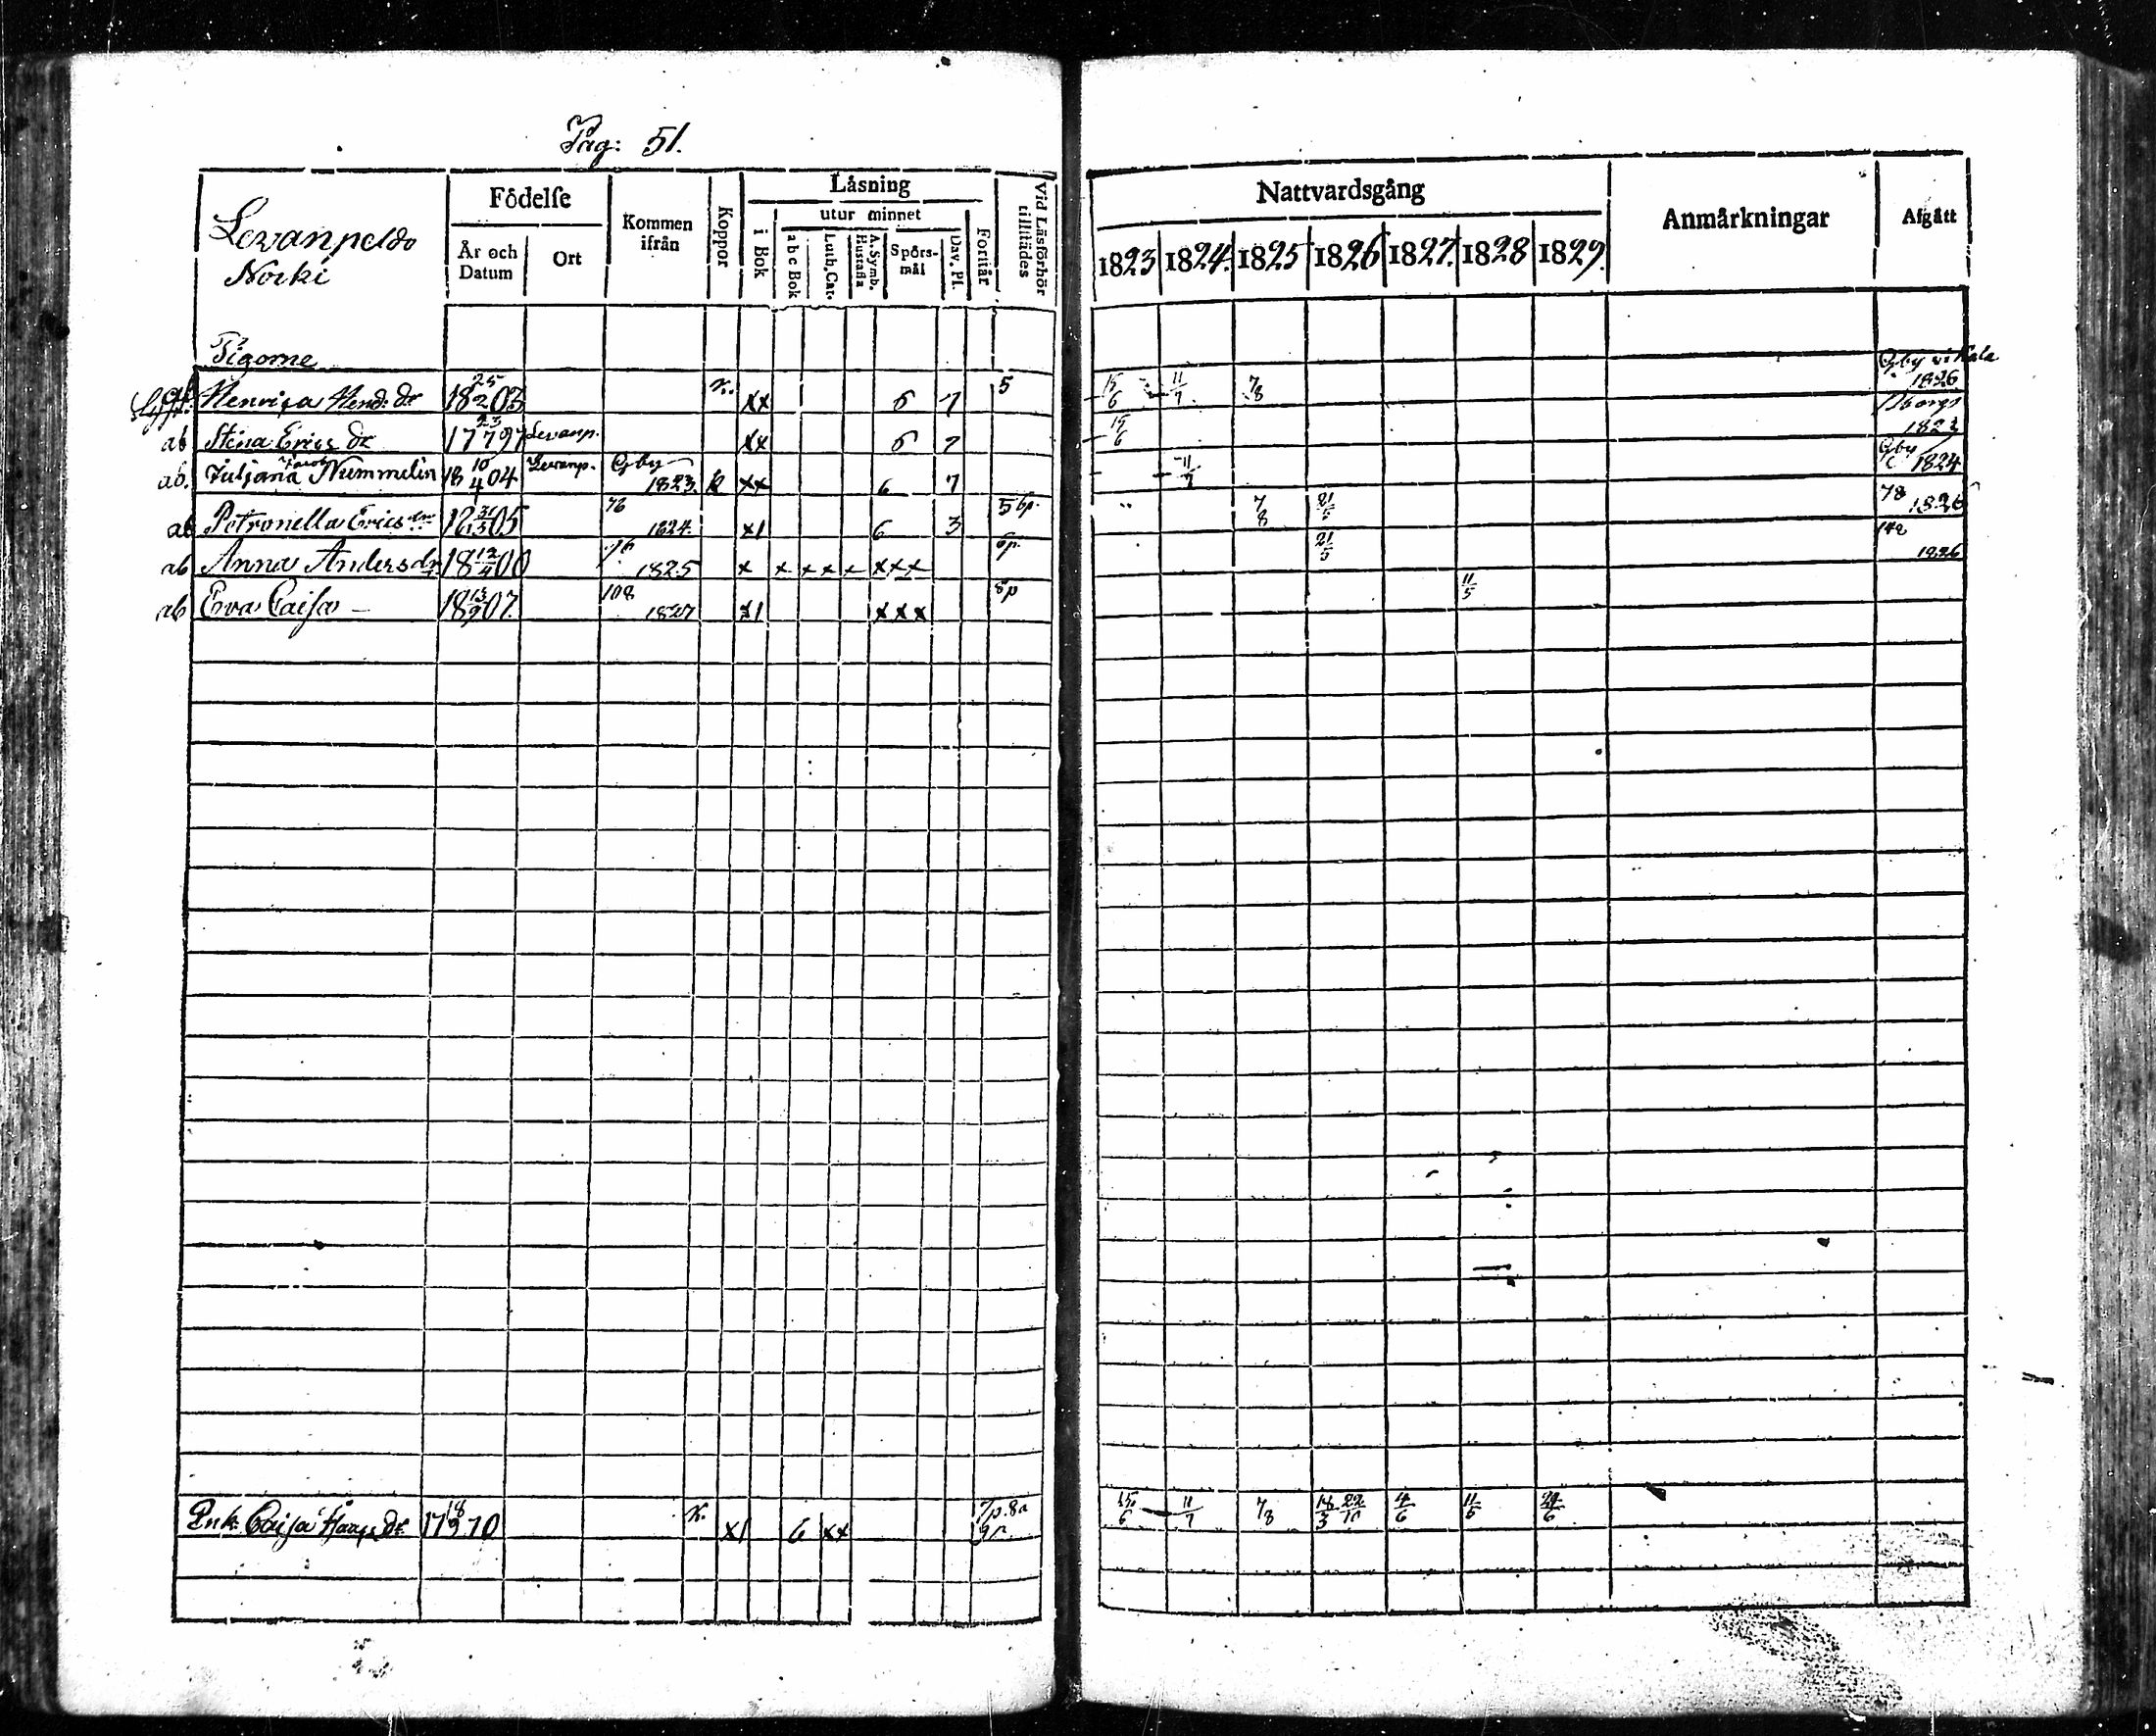 Pag: 51.
Levanpeldo
Norki
Födelse
År och Datum
Ort
Kommen ifrån
Koppor
Läsning
i Bok
utur minnet
a b c Bok
Luth. Cat.
A. Symb. Hustafla
Spörsmål
Dav. Pl.
Förstår
Vid Läsförhör tillstädes
Nattvardsgång
1823 1824. 1825 1826 1827. 1828 1829.
Anmärkningar
Afgått
Pigorne
Henrica Hend: dr 18 25/2 03 xx 6 7 5 15/6 11/7 7/8 1826
ab Stina Erics dr 17 23/7 97 Levanp. xx 6 7 15/6 1823
ab. Juliana Nummelin 18 10/4 04 Levanp. Gby 1823. k xx 6 7 11/7 Gby 1824
ab Petronella Erics dr 18 05 76 1824. x1 6 3 5 6p. 7/8 21/5 78 1826
ab Anna Anders dr 18 12/4 00 76 1825 x x x x x x x x 6p. 21/5 1826
ab Eva Caisa — 18 13/9 07. 108 1827 x1 x x x 8p 11/5
Enk. Caisa dr 17 18/9 70 x1 6 xx 7p. 8 15/6 11/7 7/8 18/3 22/10 4/6 11/5 24/6